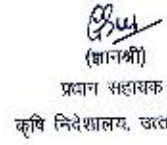 (ज्ञानश्री)
प्रधान सहायक
कृषि निदेशालय,